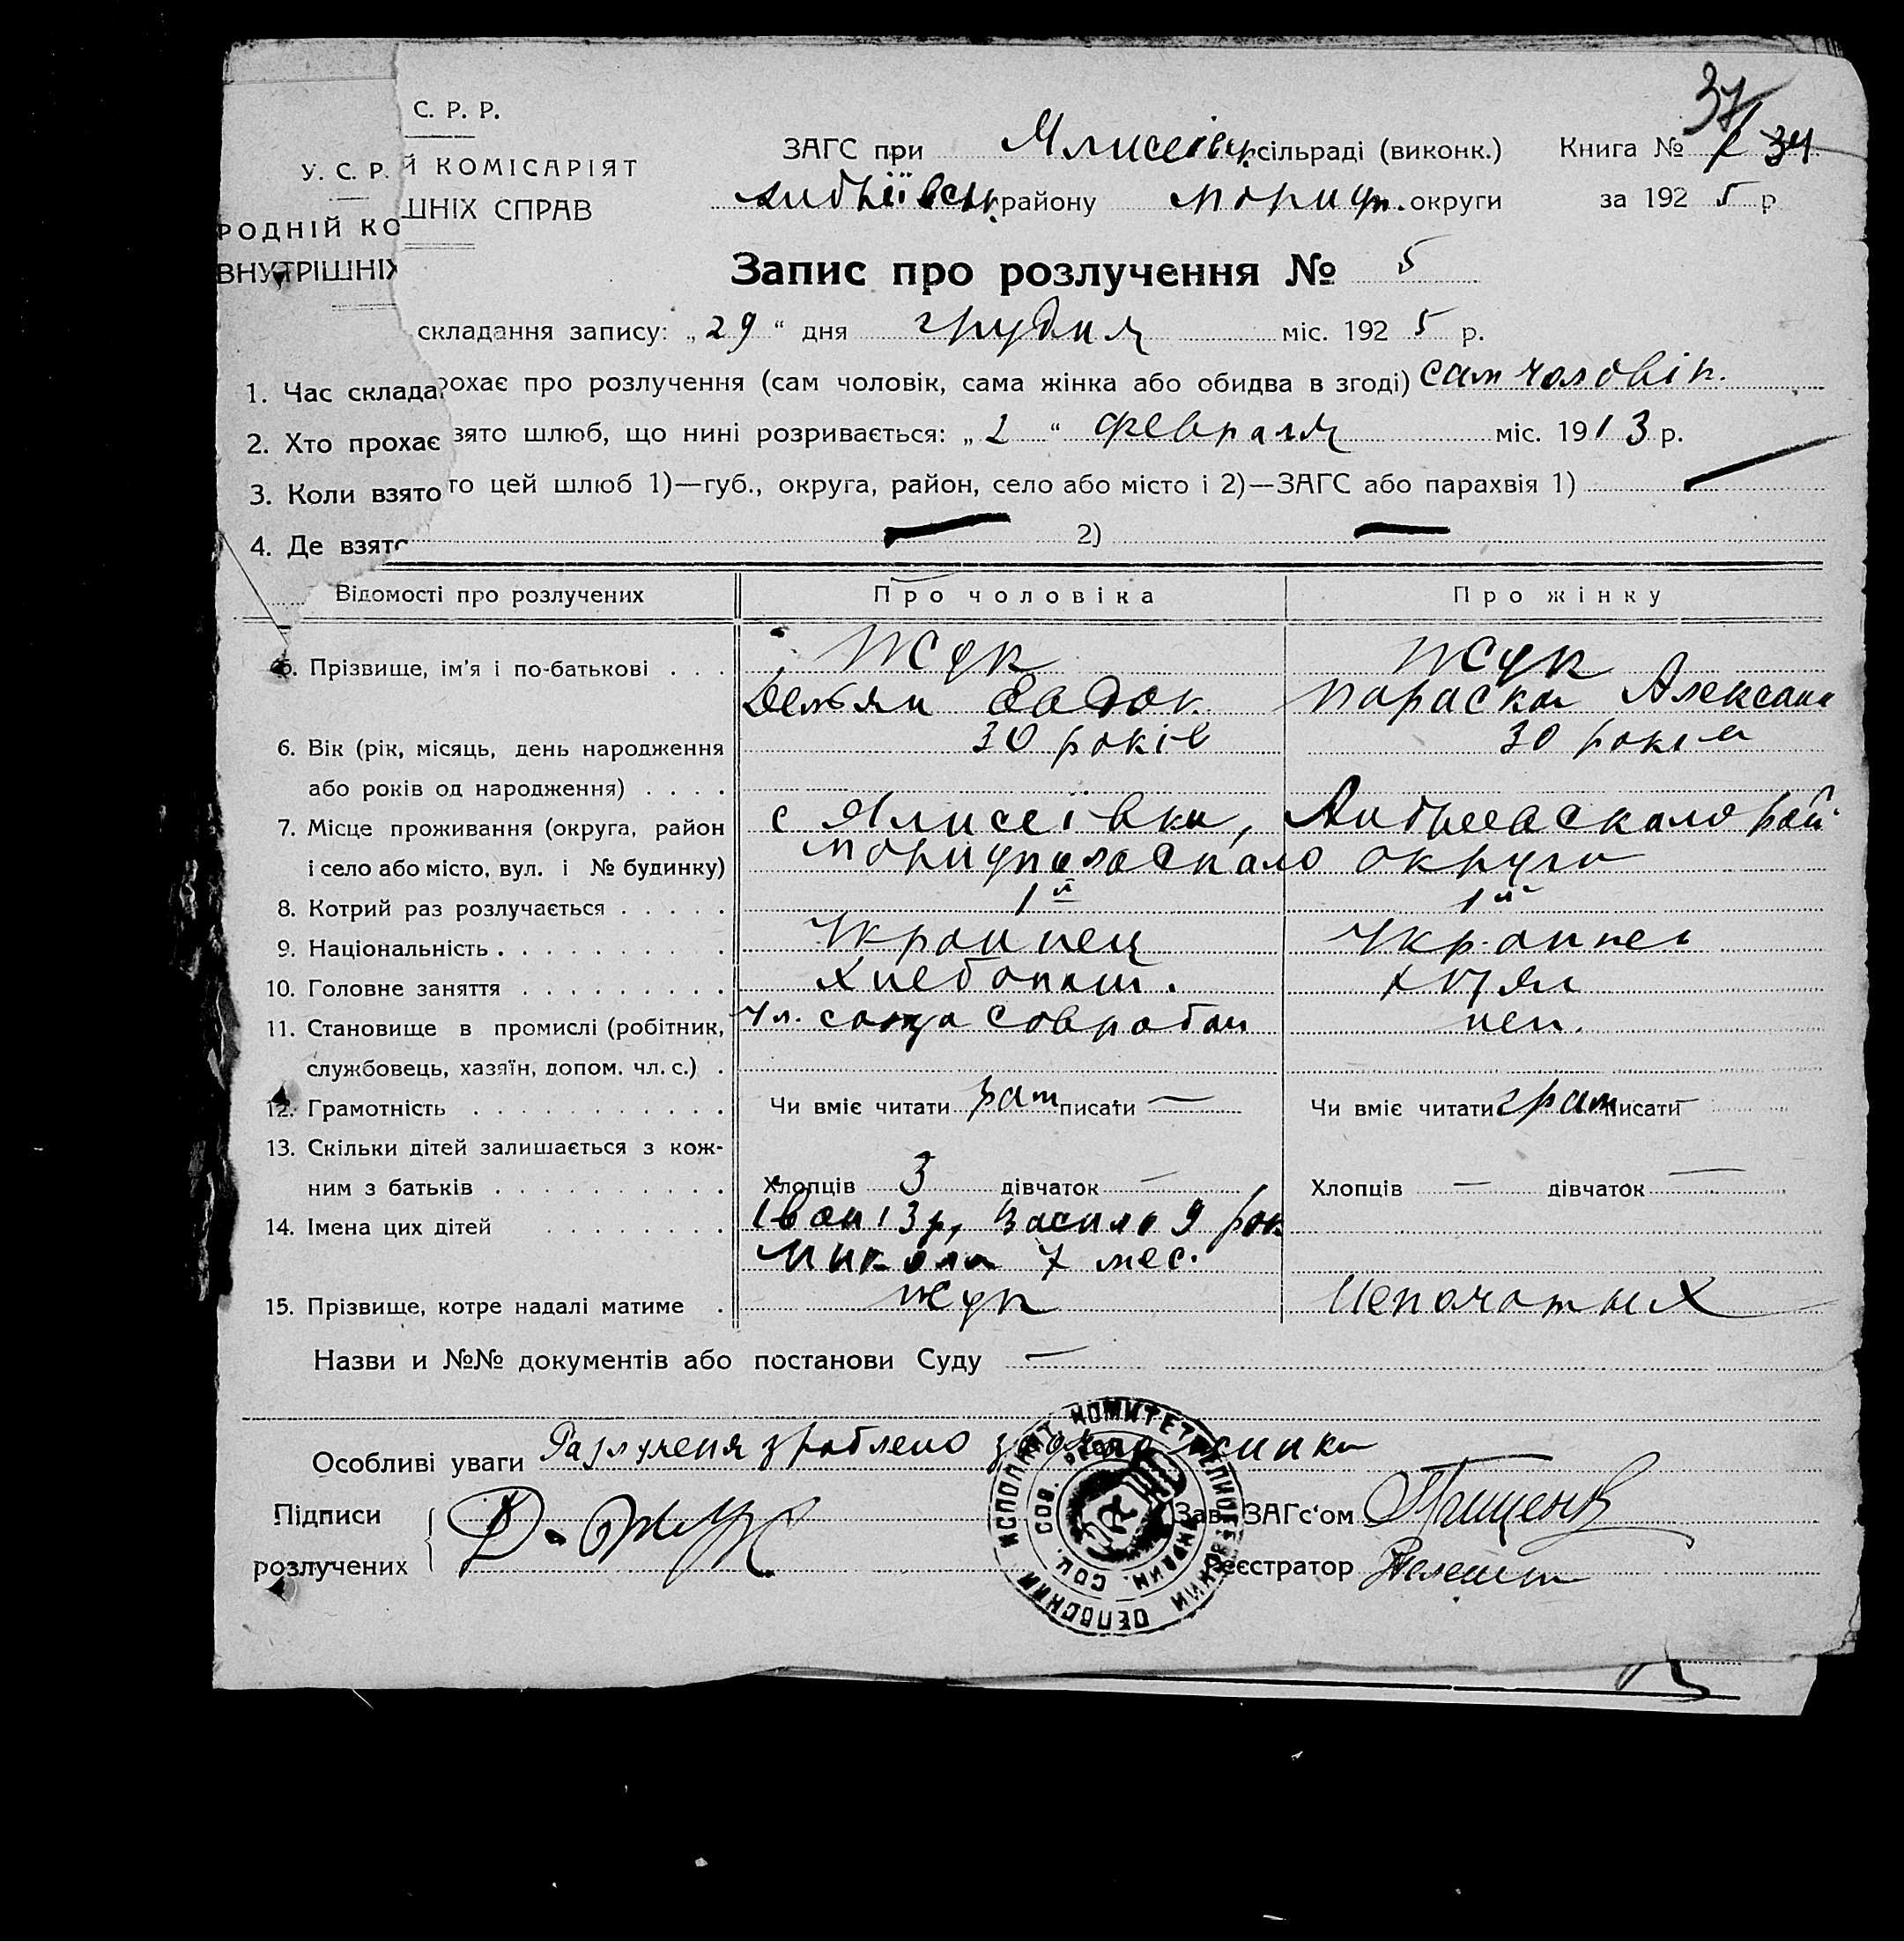 37
С. Р. Р.
У. С. Р. Й КОМІСАРІЯТ
ШНІХ СПРАВ
РОДНІЙ КО
ВНУТРІШНІХ
ЗАГС при сільраді (виконк.) Книга № 34
району округи за 1925 р
Запис про розлучення № 5
складання запису: „29“ дня грудня міс. 1925 р.
1. Час склада рохає про розлучення (сам чоловік, сама жінка або обидва в згоді) сам чоловік.
2. Хто прохає зято шлюб, що нині розривається: „2“ февраля міс. 1913 р.
3. Коли взято то цей шлюб 1)—губ., округа, район, село або місто і 2)—ЗАГС або парахвія 1)
4. Де взято 2)
Відомості про розлучених Про чоловіка Про жінку
5. Прізвище, ім’я і по-батькові . . . Жук Жук
Демян Параска Александ
6. Вік (рік, місяць, день народження 30 років 30 років
або років од народження) . . . .
7. Місце проживання (округа, район с Ялисеівки, рай.
і село або місто, вул. і № будинку) округи
8. Котрий раз розлучається . . . . . 1й 1й
9. Національність . . . . . . . . . Украинец
10. Головне заняття . . . . . . . . . хлебопаш.
11. Становище в промислі (робітник, Чл. союза Совработ
службовець, хазяїн, допом. чл. с.) .
12. Грамотність . . . . . . . . . . . Чи вміє читати писати — Чи вміє читати грам писати —
13. Скільки дітей залишається з кож-
ним з батьків . . . . . . . . . . Хлопців 3 дівчаток — Хлопців — дівчаток —
14. Імена цих дітей . . . . . . . Іван 13 р, Васило 9 рок
Микола 7 мес.
15. Прізвище, котре надалі матиме . Жук Непочатых
Назви и №№ документів або постанови Суду —
Особливі уваги Разлученя зроблено жинки
Підписи
розлучених Д. Жук
Зав. ЗАГс‘ом
Реєстратор
ИСПОЛНИТ КОМИТЕТ СЕЛЬСКИЙ